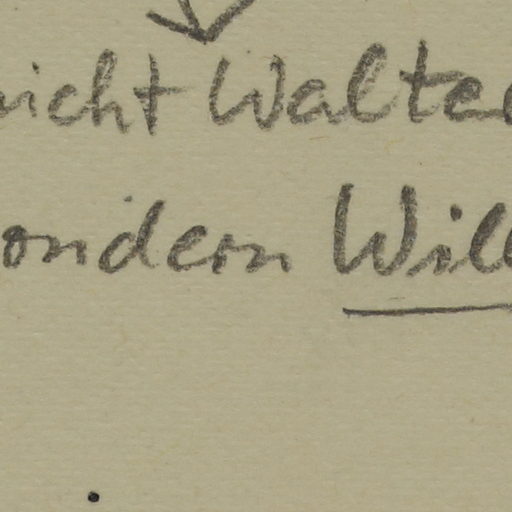 nicht Walte
ondern Will